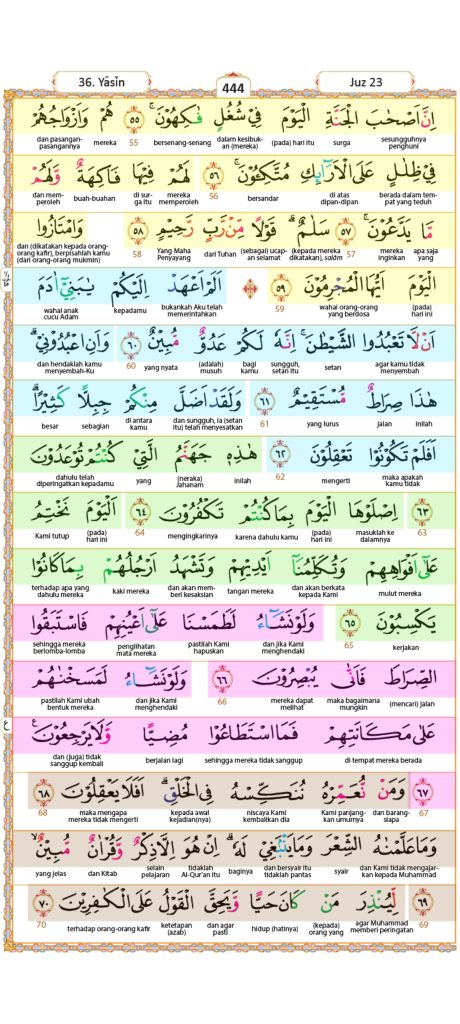 36. Yāsīn
444
Juz 23
اِنَّ اَصْحٰبَ الْجَنَّةِ الْيَوْمَ فِيْ شُغُلٍ فٰكِهُوْنَ ۚ ٥٥ هُمْ وَاَزْوَاجُهُمْ
sesungguhnya penghuni surga (pada) hari itu dalam kesibukan (mereka) bersenang-senang 55 mereka dan pasangan-pasangannya
فِيْ ظِلٰلٍ عَلَى الْاَرَاۤىِٕكِ مُتَّكِـُٔوْنَ ۚ ٥٦ لَهُمْ فِيْهَا فَاكِهَةٌ وَّلَهُمْ
berada dalam tempat yang teduh di atas dipan-dipan bersandar 56 mereka memperoleh di surga itu buah-buahan dan memperoleh
مَّا يَدَّعُوْنَ ۚ ٥٧ سَلٰمٌ ۗ قَوْلًا مِّنْ رَّبٍّ رَّحِيْمٍ ٥٨ وَامْتَازُوا
apa saja yang mereka inginkan 57 (kepada mereka dikatakan), salām (sebagai) ucapan selamat dari Tuhan Yang Maha Penyayang 58 dan (dikatakan kepada orang-orang kafir), berpisahlah kamu (dari orang-orang mukmin)
الْيَوْمَ اَيُّهَا الْمُجْرِمُوْنَ ٥٩ اَلَمْ اَعْهَدْ اِلَيْكُمْ يٰبَنِيْٓ اٰدَمَ
(pada) hari ini wahai orang-orang yang berdosa 59 bukankah Aku telah memerintahkan kepadamu wahai anak cucu Adam
اَنْ لَّا تَعْبُدُوا الشَّيْطٰنَ ۚ اِنَّهٗ لَكُمْ عَدُوٌّ مُّبِيْنٌ ٦٠ وَاَنِ اعْبُدُوْنِيْ ۗ
agar kamu tidak menyembah setan sungguh, setan itu bagi kamu (adalah) musuh yang nyata 60 dan hendaklah kamu menyembah-Ku
هٰذَا صِرَاطٌ مُّسْتَقِيْمٌ ٦١ وَلَقَدْ اَضَلَّ مِنْكُمْ جِبِلًّا كَثِيْرًا ۗ
inilah jalan yang lurus 61 dan sungguh, ia (setan itu) telah menyesatkan di antara kamu sebagian besar
اَفَلَمْ تَكُوْنُوْا تَعْقِلُوْنَ ٦٢ هٰذِهٖ جَهَنَّمُ الَّتِيْ كُنْتُمْ تُوْعَدُوْنَ
maka apakah kamu tidak mengerti 62 inilah (neraka) Jahanam yang dahulu telah diperingatkan kepadamu
٦٣ اِصْلَوْهَا الْيَوْمَ بِمَا كُنْتُمْ تَكْفُرُوْنَ ٦٤ اَلْيَوْمَ نَخْتِمُ
63 masuklah ke dalamnya (pada) hari ini karena dahulu kamu mengingkarinya 64 (pada) hari ini Kami tutup
عَلٰٓى اَفْوَاهِهِمْ وَتُكَلِّمُنَآ اَيْدِيْهِمْ وَتَشْهَدُ اَرْجُلُهُمْ بِمَا كَانُوْا
mulut mereka dan akan berkata kepada Kami tangan mereka dan akan memberi kesaksian kaki mereka terhadap apa yang dahulu mereka
يَكْسِبُوْنَ ٦٥ وَلَوْ نَشَاۤءُ لَطَمَسْنَا عَلٰٓى اَعْيُنِهِمْ فَاسْتَبَقُوا
kerjakan 65 dan jika Kami menghendaki pastilah Kami hapuskan penglihatan mata mereka sehingga mereka berlomba-lomba
الصِّرَاطَ فَاَنّٰى يُبْصِرُوْنَ ٦٦ وَلَوْ نَشَاۤءُ لَمَسَخْنٰهُمْ
(mencari) jalan maka bagaimana mungkin mereka dapat melihat 66 dan jika Kami menghendaki pastilah Kami ubah bentuk mereka
عَلٰى مَكَانَتِهِمْ فَمَا اسْتَطَاعُوْا مُضِيًّا وَّلَا يَرْجِعُوْنَ ۚ
di tempat mereka berada sehingga mereka tidak sanggup berjalan lagi dan (juga) tidak sanggup kembali
ع
٦٧ وَمَنْ نُّعَمِّرْهُ نُنَكِّسْهُ فِى الْخَلْقِ ۗ اَفَلَا يَعْقِلُوْنَ ٦٨
67 dan barangsiapa Kami panjangkan umurnya niscaya Kami kembalikan dia kepada awal kejadian(nya) maka mengapa mereka tidak mengerti 68
وَمَا عَلَّمْنٰهُ الشِّعْرَ وَمَا يَنْۢبَغِيْ لَهٗ ۗ اِنْ هُوَ اِلَّا ذِكْرٌ وَّقُرْاٰنٌ مُّبِيْنٌ ۙ
dan Kami tidak mengajarkan kepada Muhammad syair dan bersyair itu tidaklah pantas baginya tidaklah Al-Qur'an itu selain pelajaran dan Kitab yang jelas
٦٩ لِّيُنْذِرَ مَنْ كَانَ حَيًّا وَّيَحِقَّ الْقَوْلُ عَلَى الْكٰفِرِيْنَ ٧٠
69 agar Muhammad memberi peringatan (kepada) orang yang hidup (hatinya) dan agar pasti ketetapan (azab) terhadap orang-orang kafir 70